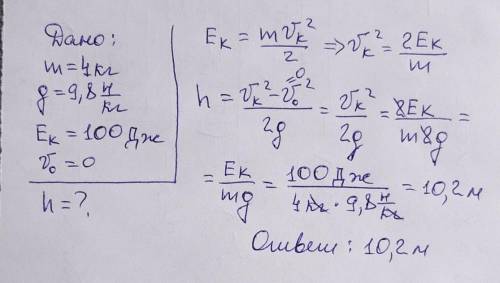 Дано:
m=4кг
g=9,8 Н/кг
Eк=100Дж
v₀=0
h=?
Eк = mvк²/2 ⇒ vк² = 2Eк/m
h = (vк²-v₀²)/2g = vк²/2g = 2Eк/m2g =
=0
= Eк/mg = 100Дж/(4кг · 9,8 Н/кг) = 10,2м
Ответ: 10,2м